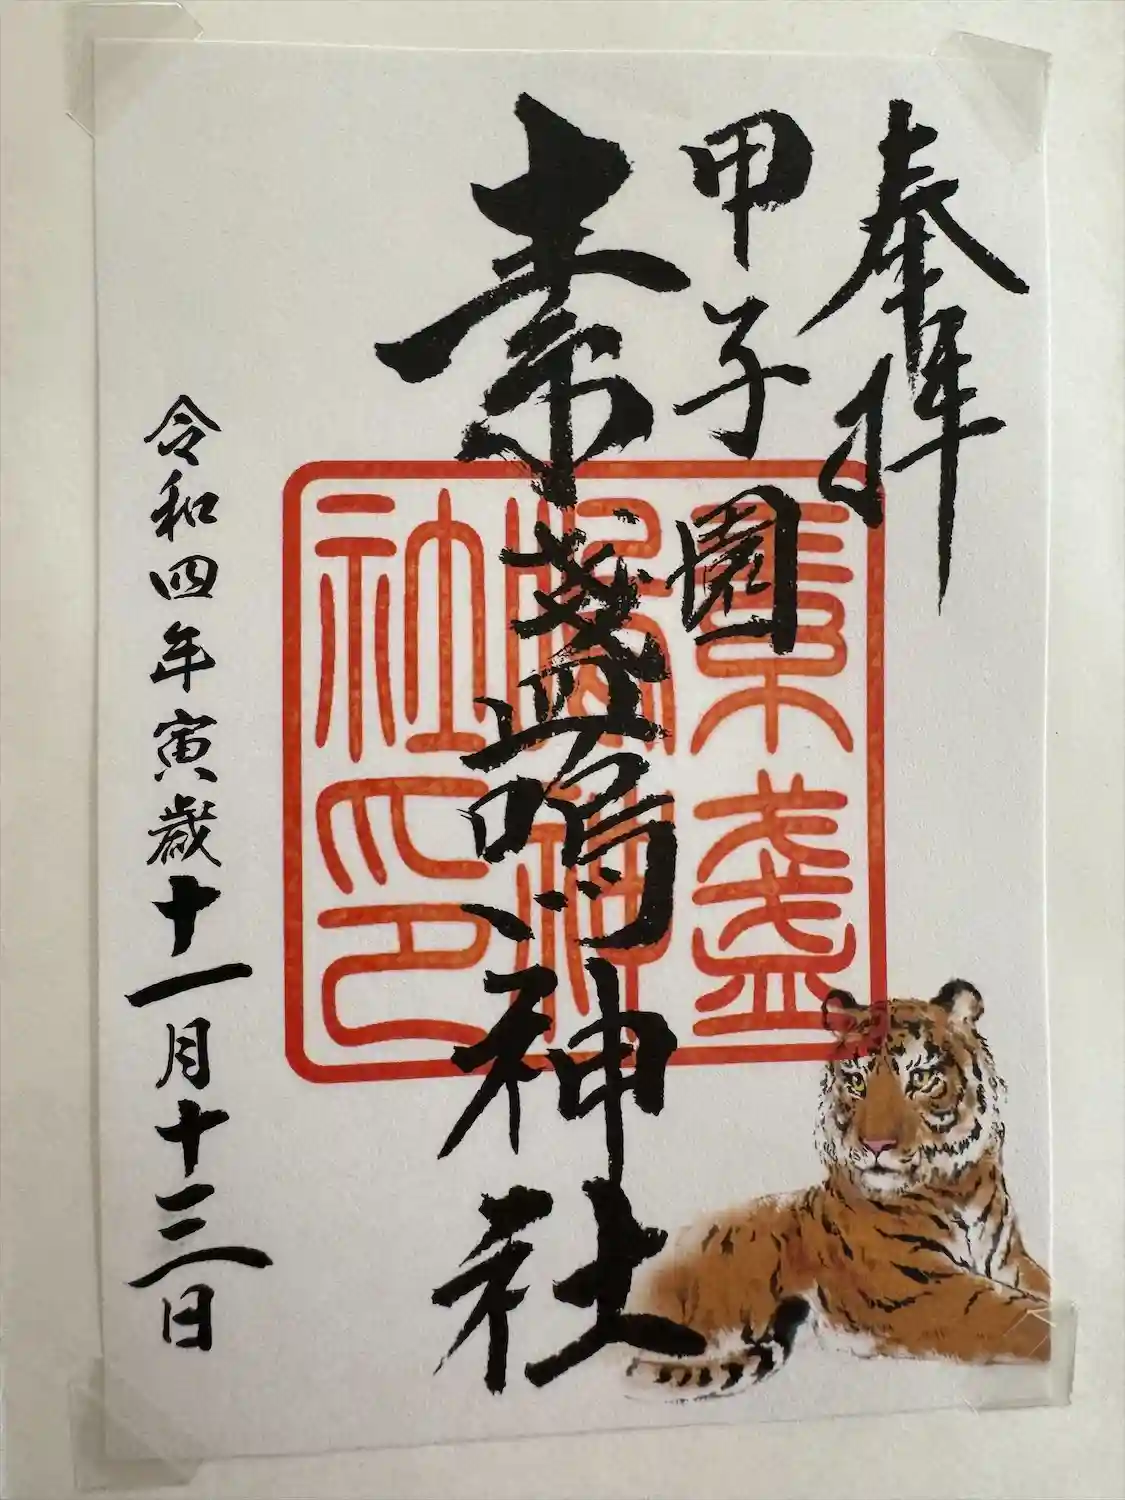 奉拝
甲子園
素盞嗚神社
素盞
嗚神
社印
令和四年寅歳十一月十三日